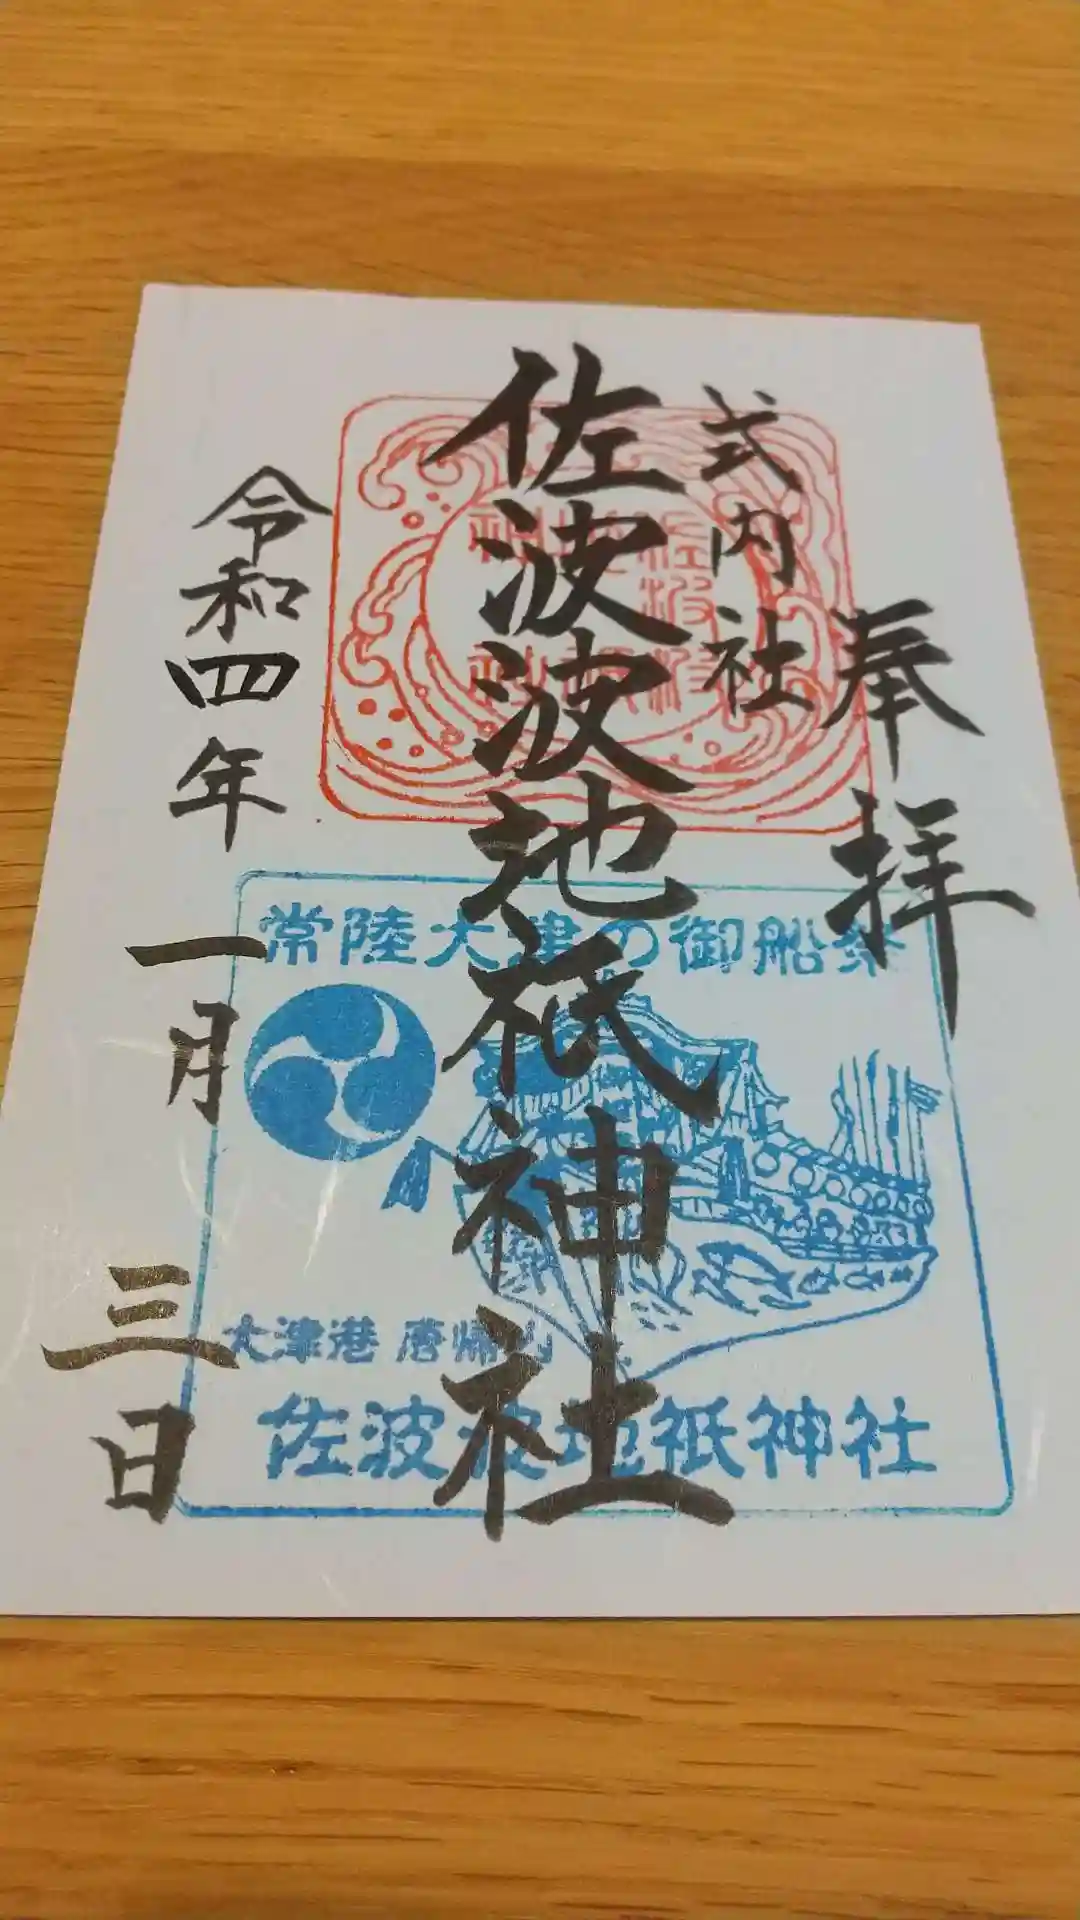 奉拝
式内社
佐波波地祇神社
令和四年一月三日
佐波波地祇神社
常陸大津の御船祭
大津港 唐帰山
佐波波地祇神社